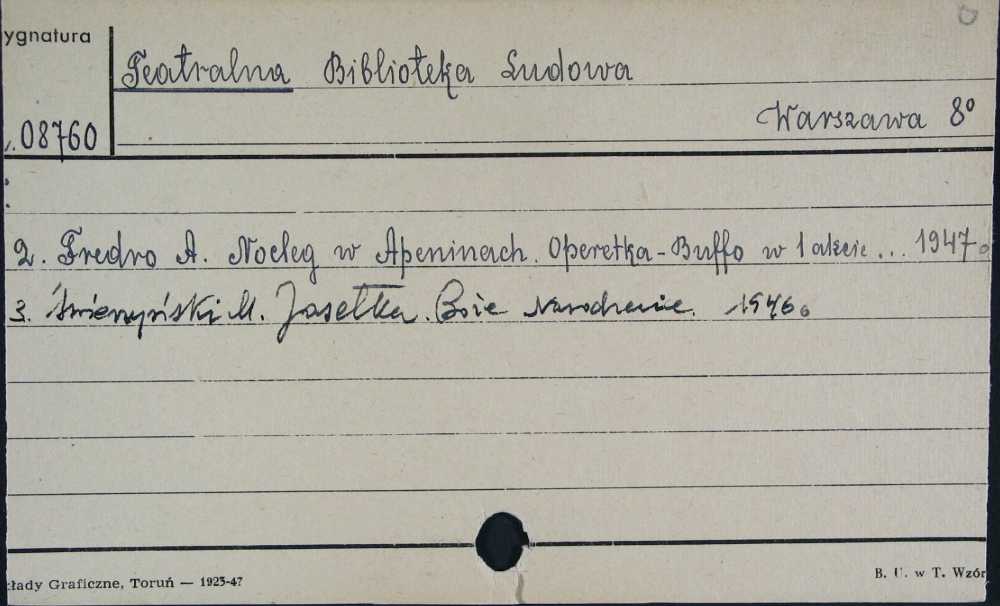 ygnatura
Teatralna Biblioteka Ludowa
Warszawa 8°
08760
2. Fredro A. Nocleg w Apeninach. Operetka-Buffo w 1 akcie... 1947.
3. Świerzyński M. Jasełka. Boże Narodzenie. 1946.
kłady Graficzne, Toruń — 1925-47
B. U. w T. Wzór